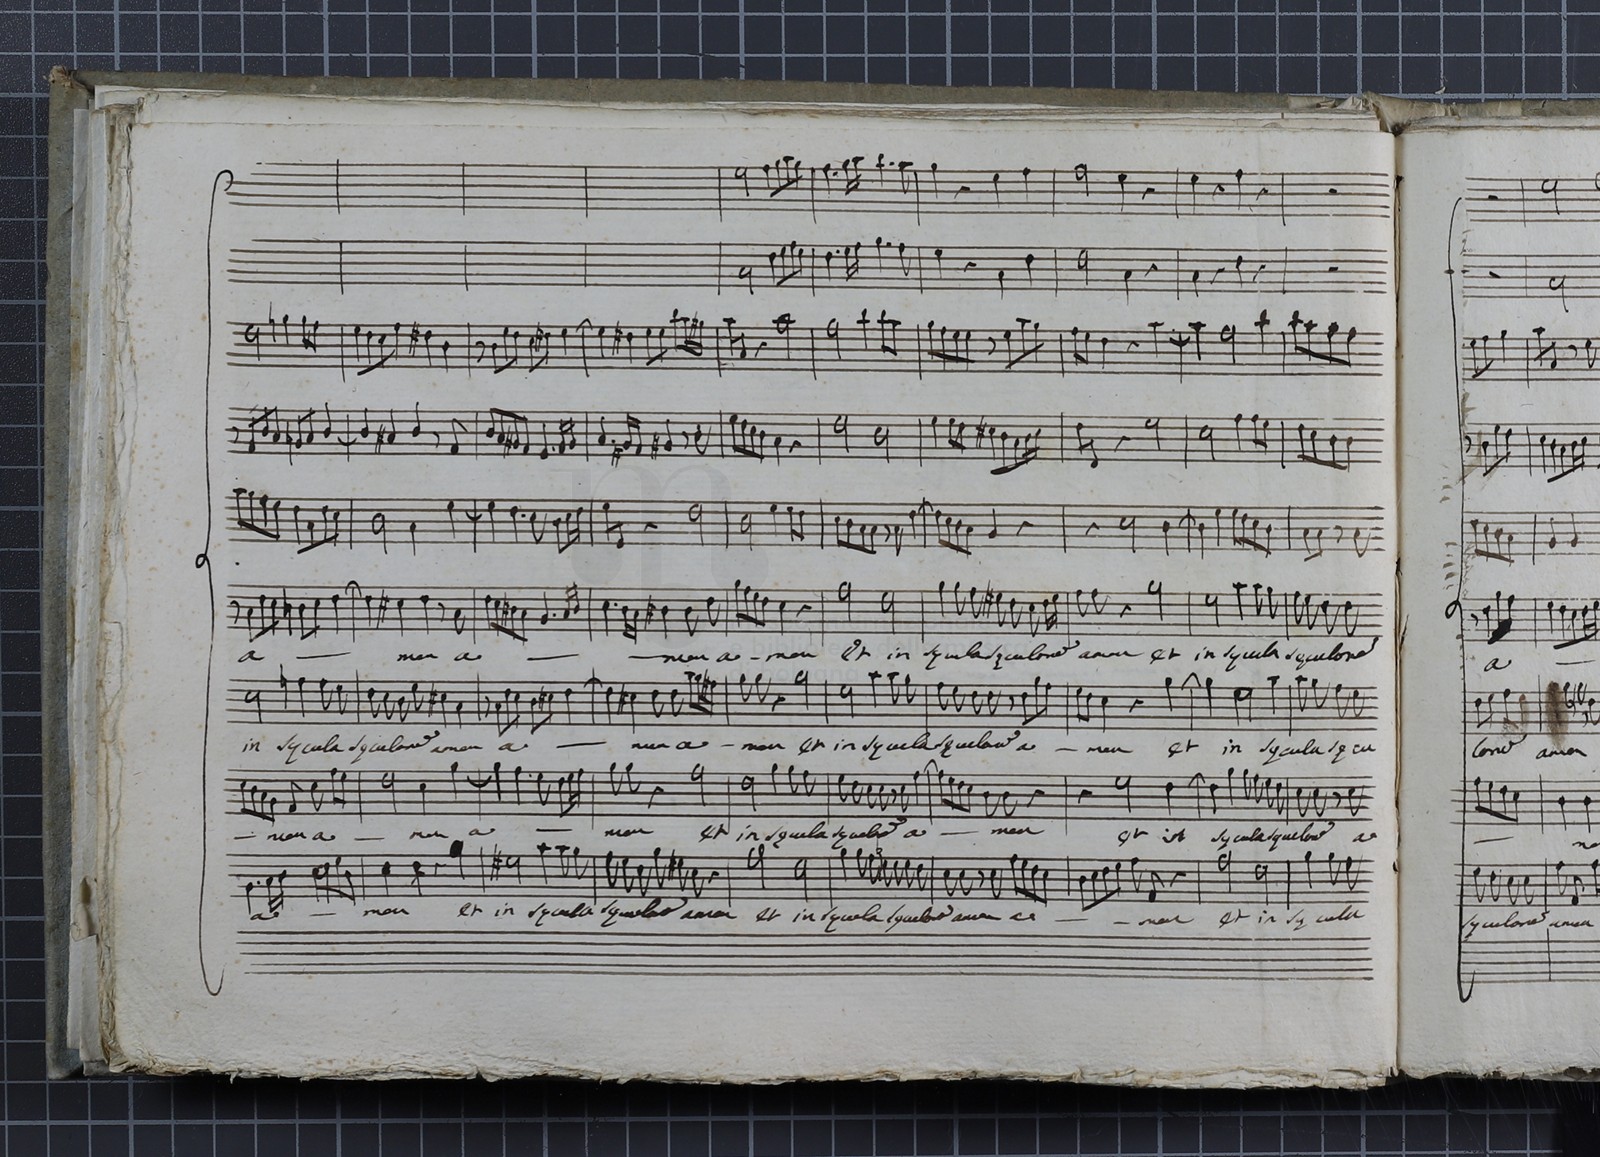 a — men a — — men a - men Et in sęcula sęculorũ amen et in sęcula sęculorũ
in sęcula sęculorũ amen a — men a - men et in sęcula sęculorũ a — men et in sęcula sęcu
— men a — men a — men et in sęcula sęculorũ a — men et in sęcula sęculorũ a
a — men et in sęcula sęculorũ amen et in sęcula sęculorũ amen a — — men et in sęcula
a —
lorũ amen
—
sęculorũ amen